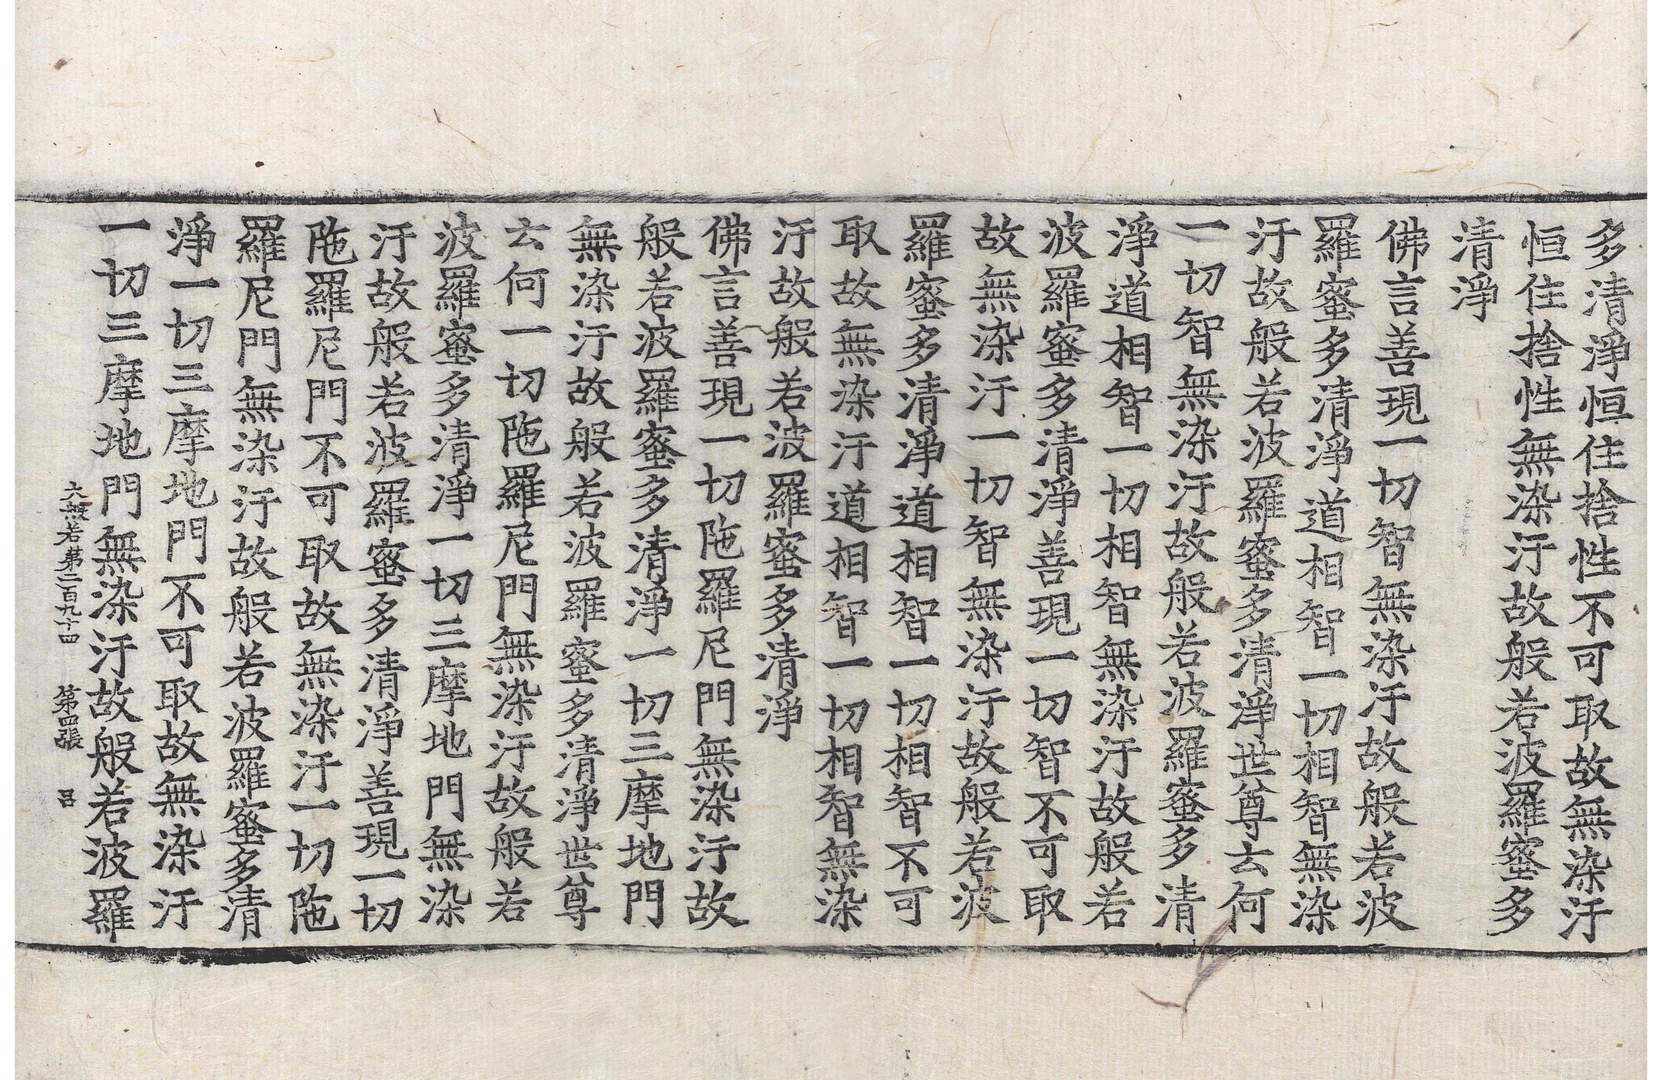 多清淨恒住捨性不可取故無染汙
恒住捨性無染汙故般若波羅蜜多
清淨
佛言善現一切智無染汙故般若波
羅蜜多清淨道相智一切相智無染
汙故般若波羅蜜多清淨世尊云何
一切智無染汙故般若波羅蜜多清
淨道相智一切相智無染汙故般若
波羅蜜多清淨善現一切智不可取
故無染汙一切智無染汙故般若波
羅蜜多清淨道相智一切相智不可
取故無染汙道相智一切相智無染
汙故般若波羅蜜多清淨
佛言善現一切陁羅尼門無染汙故
般若波羅蜜多清淨一切三摩地門
無染汙故般若波羅蜜多清淨世尊
云何一切陁羅尼門無染汙故般若
波羅蜜多清淨一切三摩地門無染
汙故般若波羅蜜多清淨善現一切
陁羅尼門不可取故無染汙一切陁
羅尼門無染汙故般若波羅蜜多清
淨一切三摩地門不可取故無染汙
一切三摩地門無染汙故般若波羅
大般若第二百九十四 第四張 吕